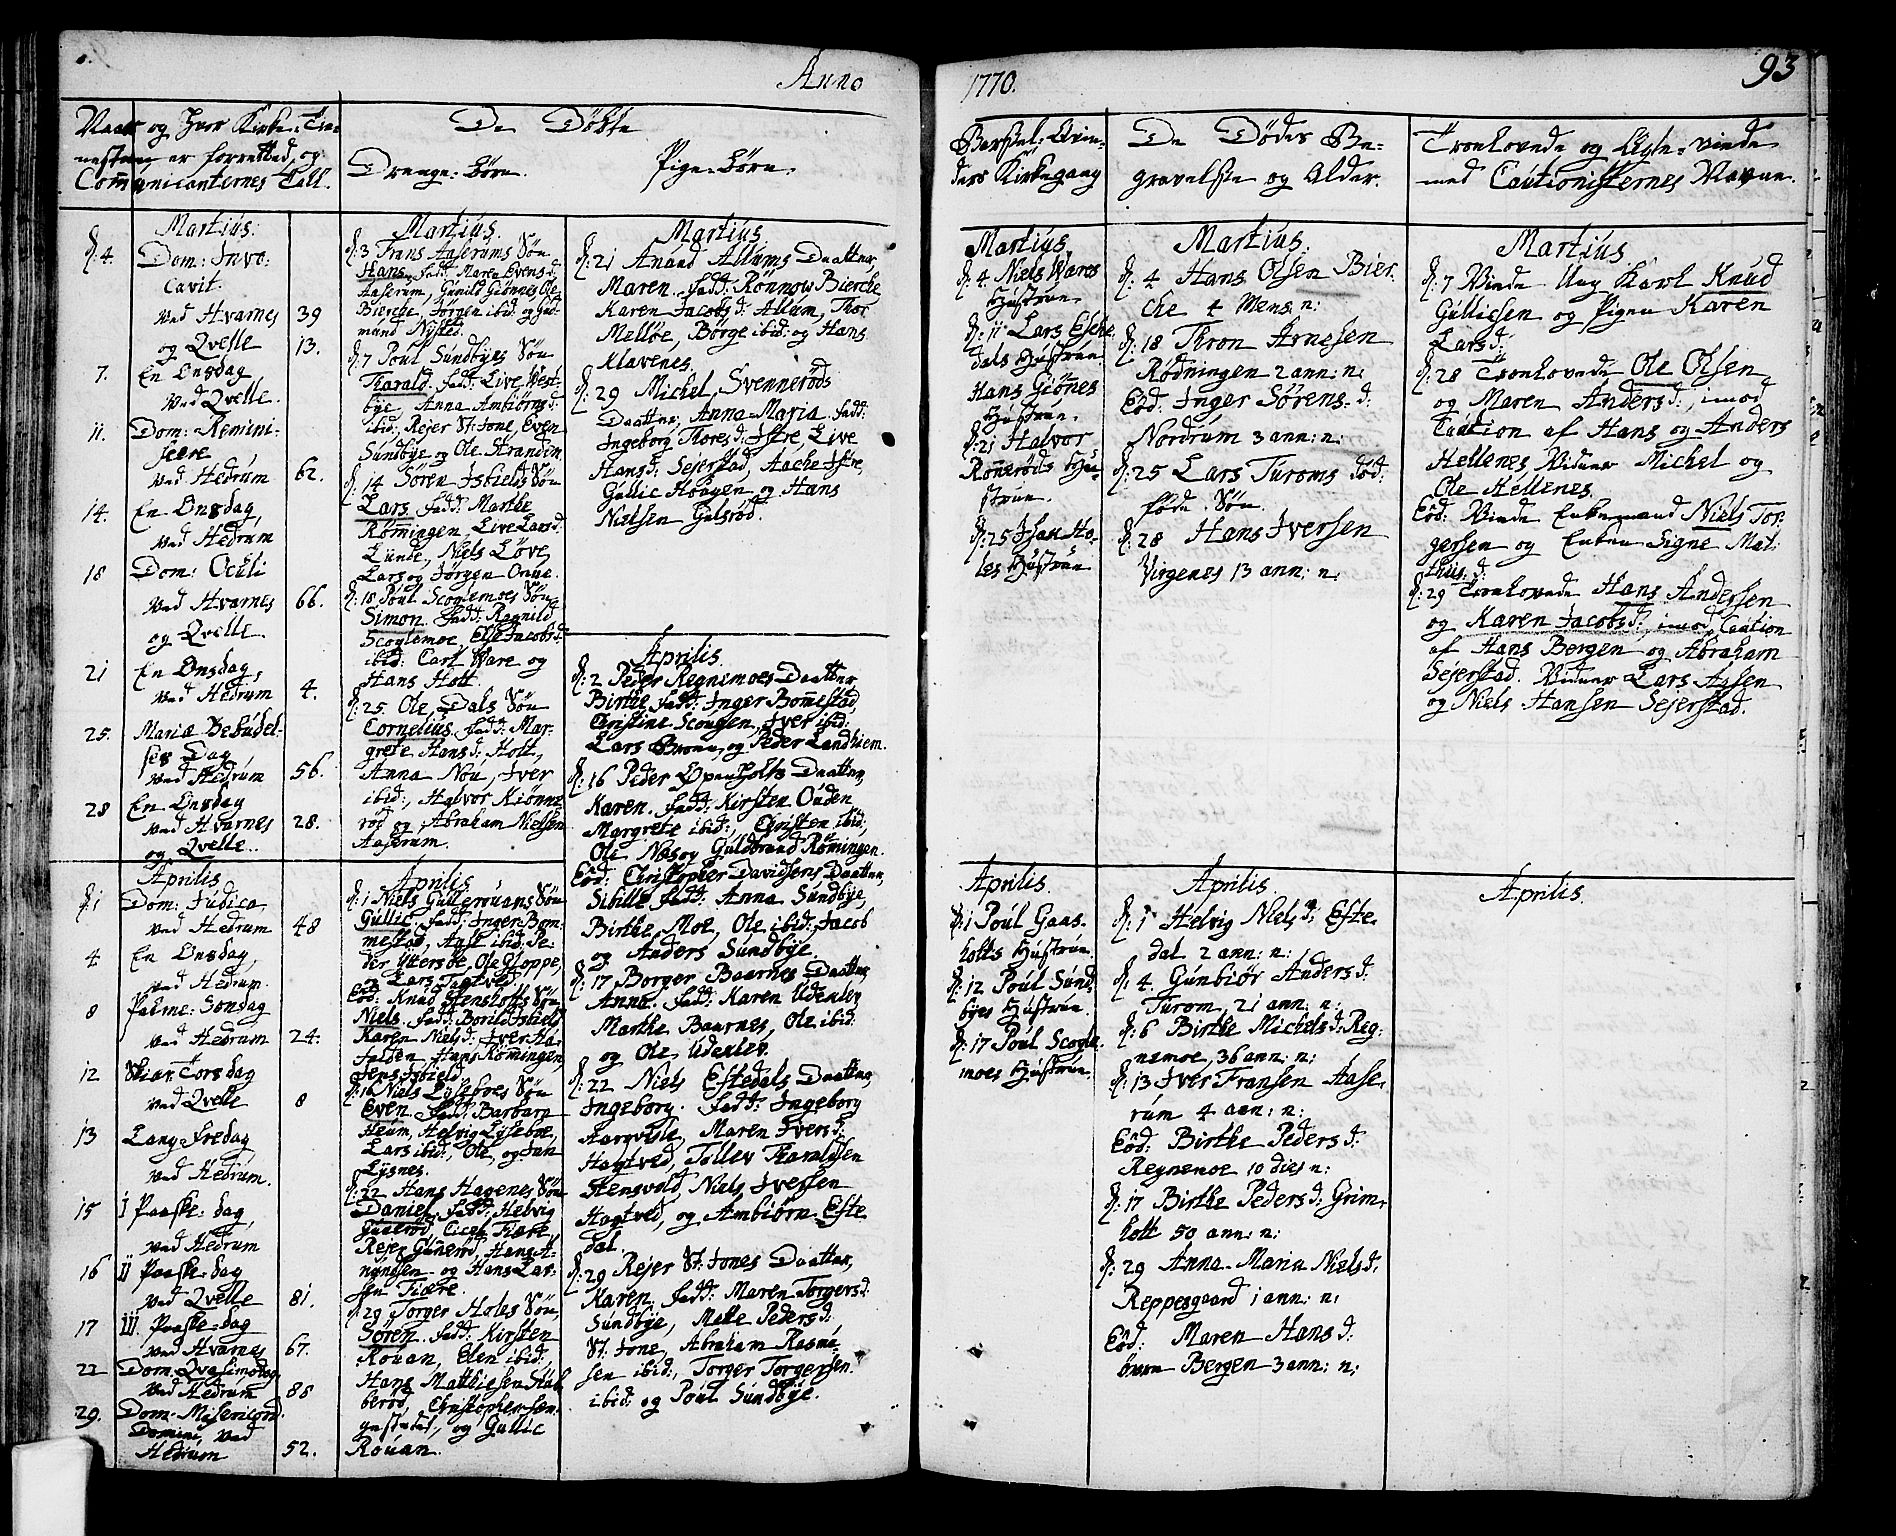 Anno
Naar og hvor Kirke-Tie-
nesten er forretted, og
Com̄unicanternes Tall.
De Döbte
Drenge-börn.
Pige-börn.
Martius.
d: 4. Dom: Invo-
cavit.
ved Hvarnes 39
og Qvelle 13.
7. En Onsdag
ved Qvelle.
11. Dom: Remini-
scere
ved Hedrum 62.
14. En Onsdag,
ved Hedrum
18 Dom: Oculi
ved Hvarnes 66.
og Qvelle.
21 En Onsdag,
ved Hedrum 4.
25. Mariæ Bebudel-
ses Dag
ved Hedrum 56.
28 En Onsdag
ved Hvarnes 28.
og Qvelle.
Aprilis
d: 1 Dom: Judica
ved Hedrum 48
4 En Onsdag,
ved Hedrum.
8 Palme-Söndag
ved Hedrum 24.
12 Skiær Torsdag
ved Qvelle 8
13 Lang-fredag
ved Hedrum.
15 I Paaske-dag
ved Hedrum
16 II Paaske-dag
ved Qvelle 81.
17 III. Paaske-dag
ved Hvarnes 67.
22 Dom: Qvasimodog.
ved Hedrum 86
29. Dom. Misericord.
Domini, ved
Hedrum 52.
Martius.
d: 3 Frans Aaserums Sön
Hans. fadd: Maren Evens d:
Aaserum, Gunild Giönnes, Ole
Bierche, Jörgen ibid: og Gud-
mund Nysted.
d: 7 Poul Sundbyes Sön
Harald. fadd: Live West-
bye, Anna Ambiörns d:
ibid: Rejer St: Jone, Even
Sundbye og Ole Strandin
d: 14 Sören Isbields Sön
Lars fadd: Marthe
Röm̄ingen, Live Lars d:
Lunde, Niels Löve,
Lars og Jörgen Onne.
d: 18 Poul Scoglemoes Sön
Simon. fadd: Ragnild
Scoglemoe, Else Jacobs d:
ibid: Carl Ware og
Hans Holt.
d: 25. Ole Dals Sön
Cornelius fadd: Mar-
grete Hans d: Holt,
Anna Nou, Iver
ibid:, Halvor Kiönne-
röd og Abraham Nielsen
Aaserum.
Aprilis
d: 1 Niels Gullerouans Sön
Gullic, fadd: Inger Bom-
mestad, Aase ibid: Pe-
der Yttersöe, Ole Gloppe,
og Lars Tagtved.
Eod: Knud Stensholts Sön
Niels. fadd: Borild Isbield,
Karen Niels d: Iver Ha-
falden, Hans Röm̄ingen,
Jens Isbield.
d: 16 Niels Lyseboes Sön
Even. fadd: Barbara
Heum, Helvig Lyseboe,
Lars ibid:, Ole, og Jan
Lysnes.
d: 22 Hans Hagenes Sön
Daniel, fadd: Helvig
Guneröd, Cicel Fiære,
Rejer Guneröd, Hans A-
nundsen og Hans Lar-
sen Fiære.
d: 29 Torger Holes Sön,
Sören. fadd: Kirsten
Rouan, Elen ibid:
Hans Mathiesen Stal-
beröd, Christopher Sæn-
gestedet, og Gullic
Rouan.
Martius
d: 21 Anund Allums Daatter,
Maren. fadd: Rönnow Bierche
Karen Jacobs d: Allum, Thor
Melløe, Börge ibid: og Hans
Klavenes.
d: 29 Michel Svenneröds
Daatter, Anna-Maria. fadd:
Ingeborg Thores d: Istre, Live
Hans d: Sejerstad, Aache Istre,
Gullic Hougen og Hans
Nielsen Gulsröd.
Aprilis
d: 2 Peder Regnemoes Daatter
Birthe, fadd: Inger Bom̄estad
Christine Scougen, Iver ibid:
Lars Brone og Peder Landhiem.
d: 16 Peder Openholts Daatter,
Karen. fadd: Kirsten Ouden
Margrete ibid:, Christen ibid,
Ole Næs og Guldbrand Röm̄ingen.
Eod: Christopher Davidsens Daatter,
Sibille fadd: Anna Sundbye,
Birthe, Moe, Ole ibid: Jacob
og Anders Sundbye.
d: 17 Borger Baarnes Daatter
Anne. fadd: Karen Udenlev
Marthe Baarnes, Ole ibid:
og Ole Udenlev.
d: 22 Niels Estedals Daatter,
Ingeborg. fadd: Ingeborg
Aargvisle, Maren Ivers d:
Hagtved, Tollev Haraldsen
Stensvold, Niels Iversen
Hagtved, og Ambiörn Este
dal.
d: 29 Rejer St: Jones Daatter,
Karen, fadd: Maren Torgers d:
Sundbye, Mette Peders d:
St: Jone, Abraham Rasmu-
sen ibid:, Torger Torgersen
ibid: og Poul Sundbye.
1770.
93
Barsel-Qvin-
ders Kirkegang
De Dödes Be-
gravelse og Alder.
Trolovede og Ægte-viede
med Cautionisternes Navne.
Martius
d: 4. Niels Wares
Hustrue.
d: 11 Lars Este-
dals Hustrue
Hans Giönes
Hustrue.
d: 21 Halvor
Rönneröds Hu-
strue.
d: 25 Isac Ho-
les Hustrue
Aprilis.
d: 1 Poul Gaas-
holts Hustrue.
d: 12 Poul Sund-
byes Hustrue.
d: 17 Poul Scogle-
moes Hustrue.
Martius.
d: 4 Hans Olsen Bier-
che 4 Mens: n:
d: 18 Thron Arnesen
Rödningen 2 ann: n:
Eod: Inger Sörens-d:
Nordrum 3 ann: n:
d: 25 Lars Turoms död-
föde Sön.
d: 28 Hans Iversen
Virgenes 13 ann: n:
Aprilis.
d: 1 Helvig Niels d: Este-
dal 2 ann: n:
d: 4. Gunbiör Anders d:
Turom, 21 ann: n:
d: 6 Birthe Michels d: Reg-
nemoe, 36 ann: n:
d: 13 Iver Fransen Aase-
rum 4 ann: n:
Eod: Birthe Peders d:
Regnemoe 10 dies n:
d: 17 Birthe Peders d: Grim-
holt 50 ann: n:
d: 29 Anna-Maria Niels d.
Reppesgaard 1 ann: n:
Eod: Maren Hans d:
Bergen 3 ann: n:
Martius.
d: 7 Viede Ung Karl Knud
Gulliesen og Pigen Karen
Lars d:
d: 28 Trolovede Ole Olsen
og Maren Anders d:, imod
Caution af Hans og Anders
Hellenes Vidner Michel og
Ole Hellenes.
Eod: Viede Enkemand Niels Tor-
gersen og Enken Signe Mat-
this: d:
d: 29 Trolovede Hans Andersen
og Karen Jacobs d:, imod Caution
af Hans Bergen og Abraham
Sejerstad. Vidner Lars Assen
og Niels Hansen Sejerstad.
Aprilis.